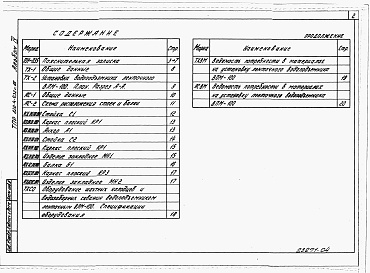 2
СОДЕРЖАНИЕ
Марка Наименование Стр.
Пояснительная записка 3-7
ТХ-1 Общие данные 8
ТХ-2 Установка водоподъемника ленточного
ВЛМ-100. План. Разрез А-А. 9
АС-1 Общие данные 10
АС-2 Схема расположения стоек и балок 11
Стойка С1 12
Каркас плоский КР1 13
Анкер А1 13
Стойка С2 14
Каркас плоский КР1 15
Изделие закладное МН1 15
Балка Б1 16
Каркас плоский КР3 17
Изделие закладное МН2 17
ТХСО Оборудование шахтных колодцев и
водозаборных скважин водоподъемником
ленточным ВЛМ-100. Спецификации
оборудования 18
ПРОДОЛЖЕНИЕ
Марка Наименование Стр.
ТХВМ Ведомость потребности в материалах
на установку ленточного водоподъемника
ВЛМ-100 19
АСВМ Ведомость потребности в материалах
на установку ленточного водоподъемника
ВЛМ-100 20
Альбом IV
23871-04